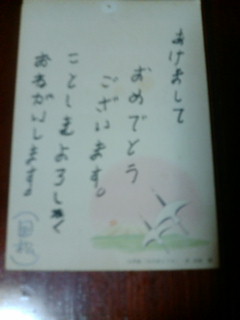 あけまして
おめでとう
ございます。
ことしもよろしく
おねがいします。